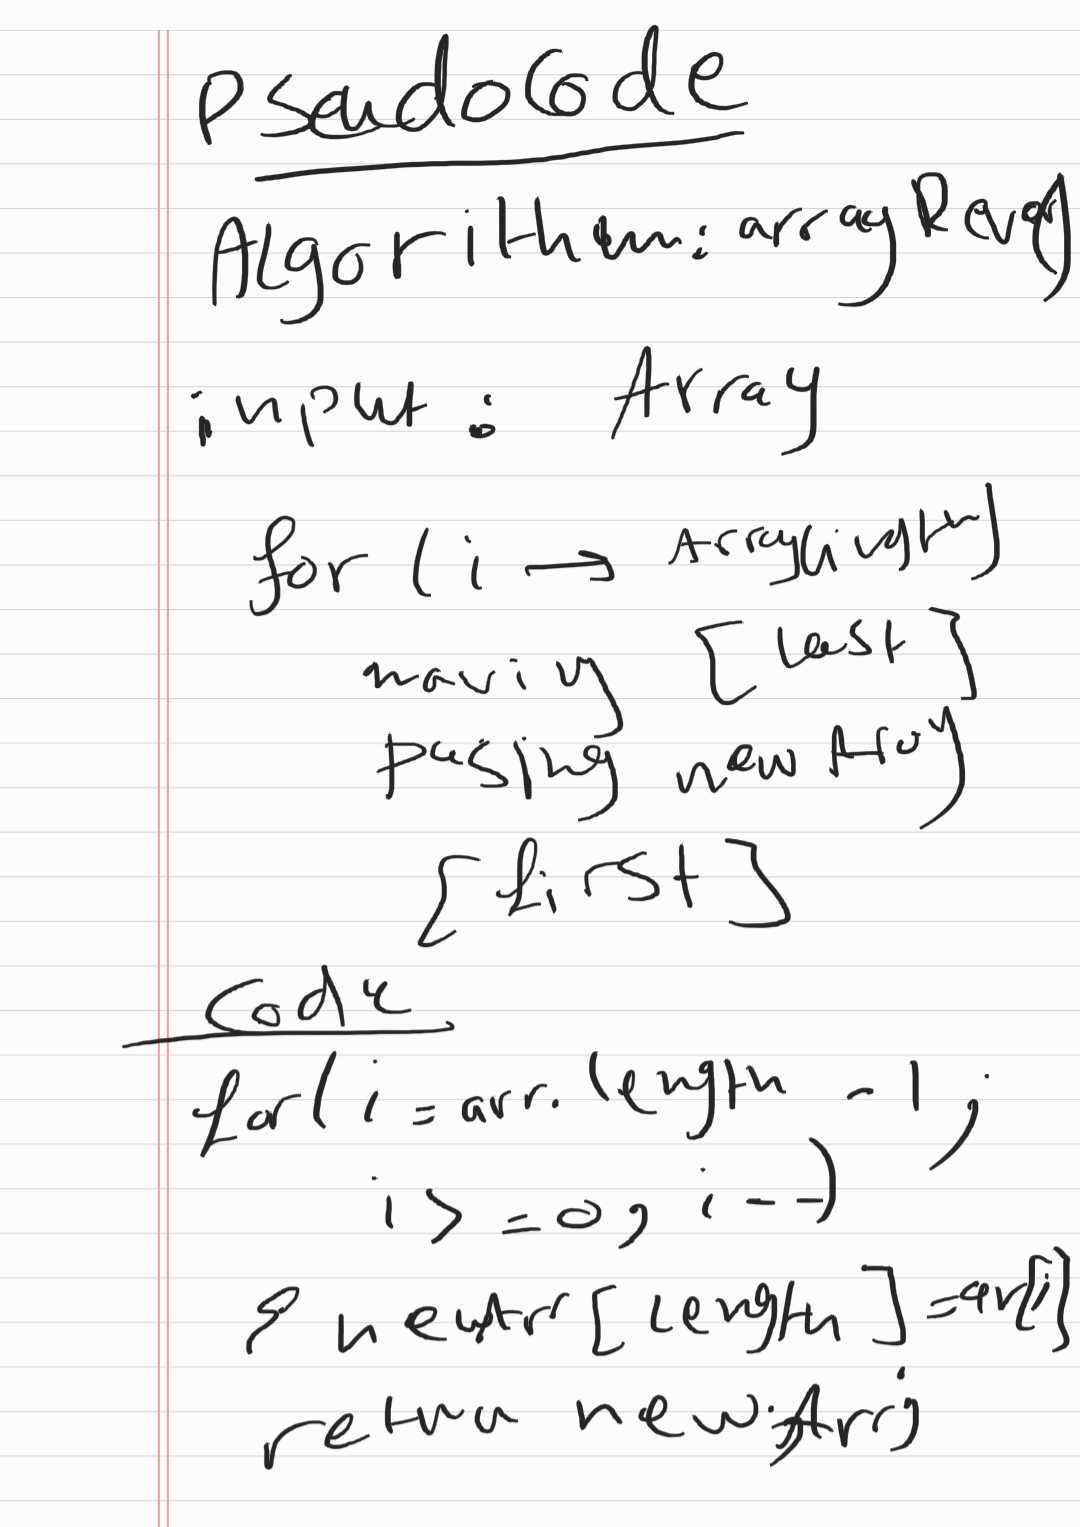 PseudoCode
Algorithem: array Rever
input : Array
for ( i → Array(lingth)
moving [ last ]
pasing new Array
[ first ]
Code
for( i = arr. length - 1 ;
i > = 0 ; i - - )
newArr [ Length ] = arr[i]
return new Arr;